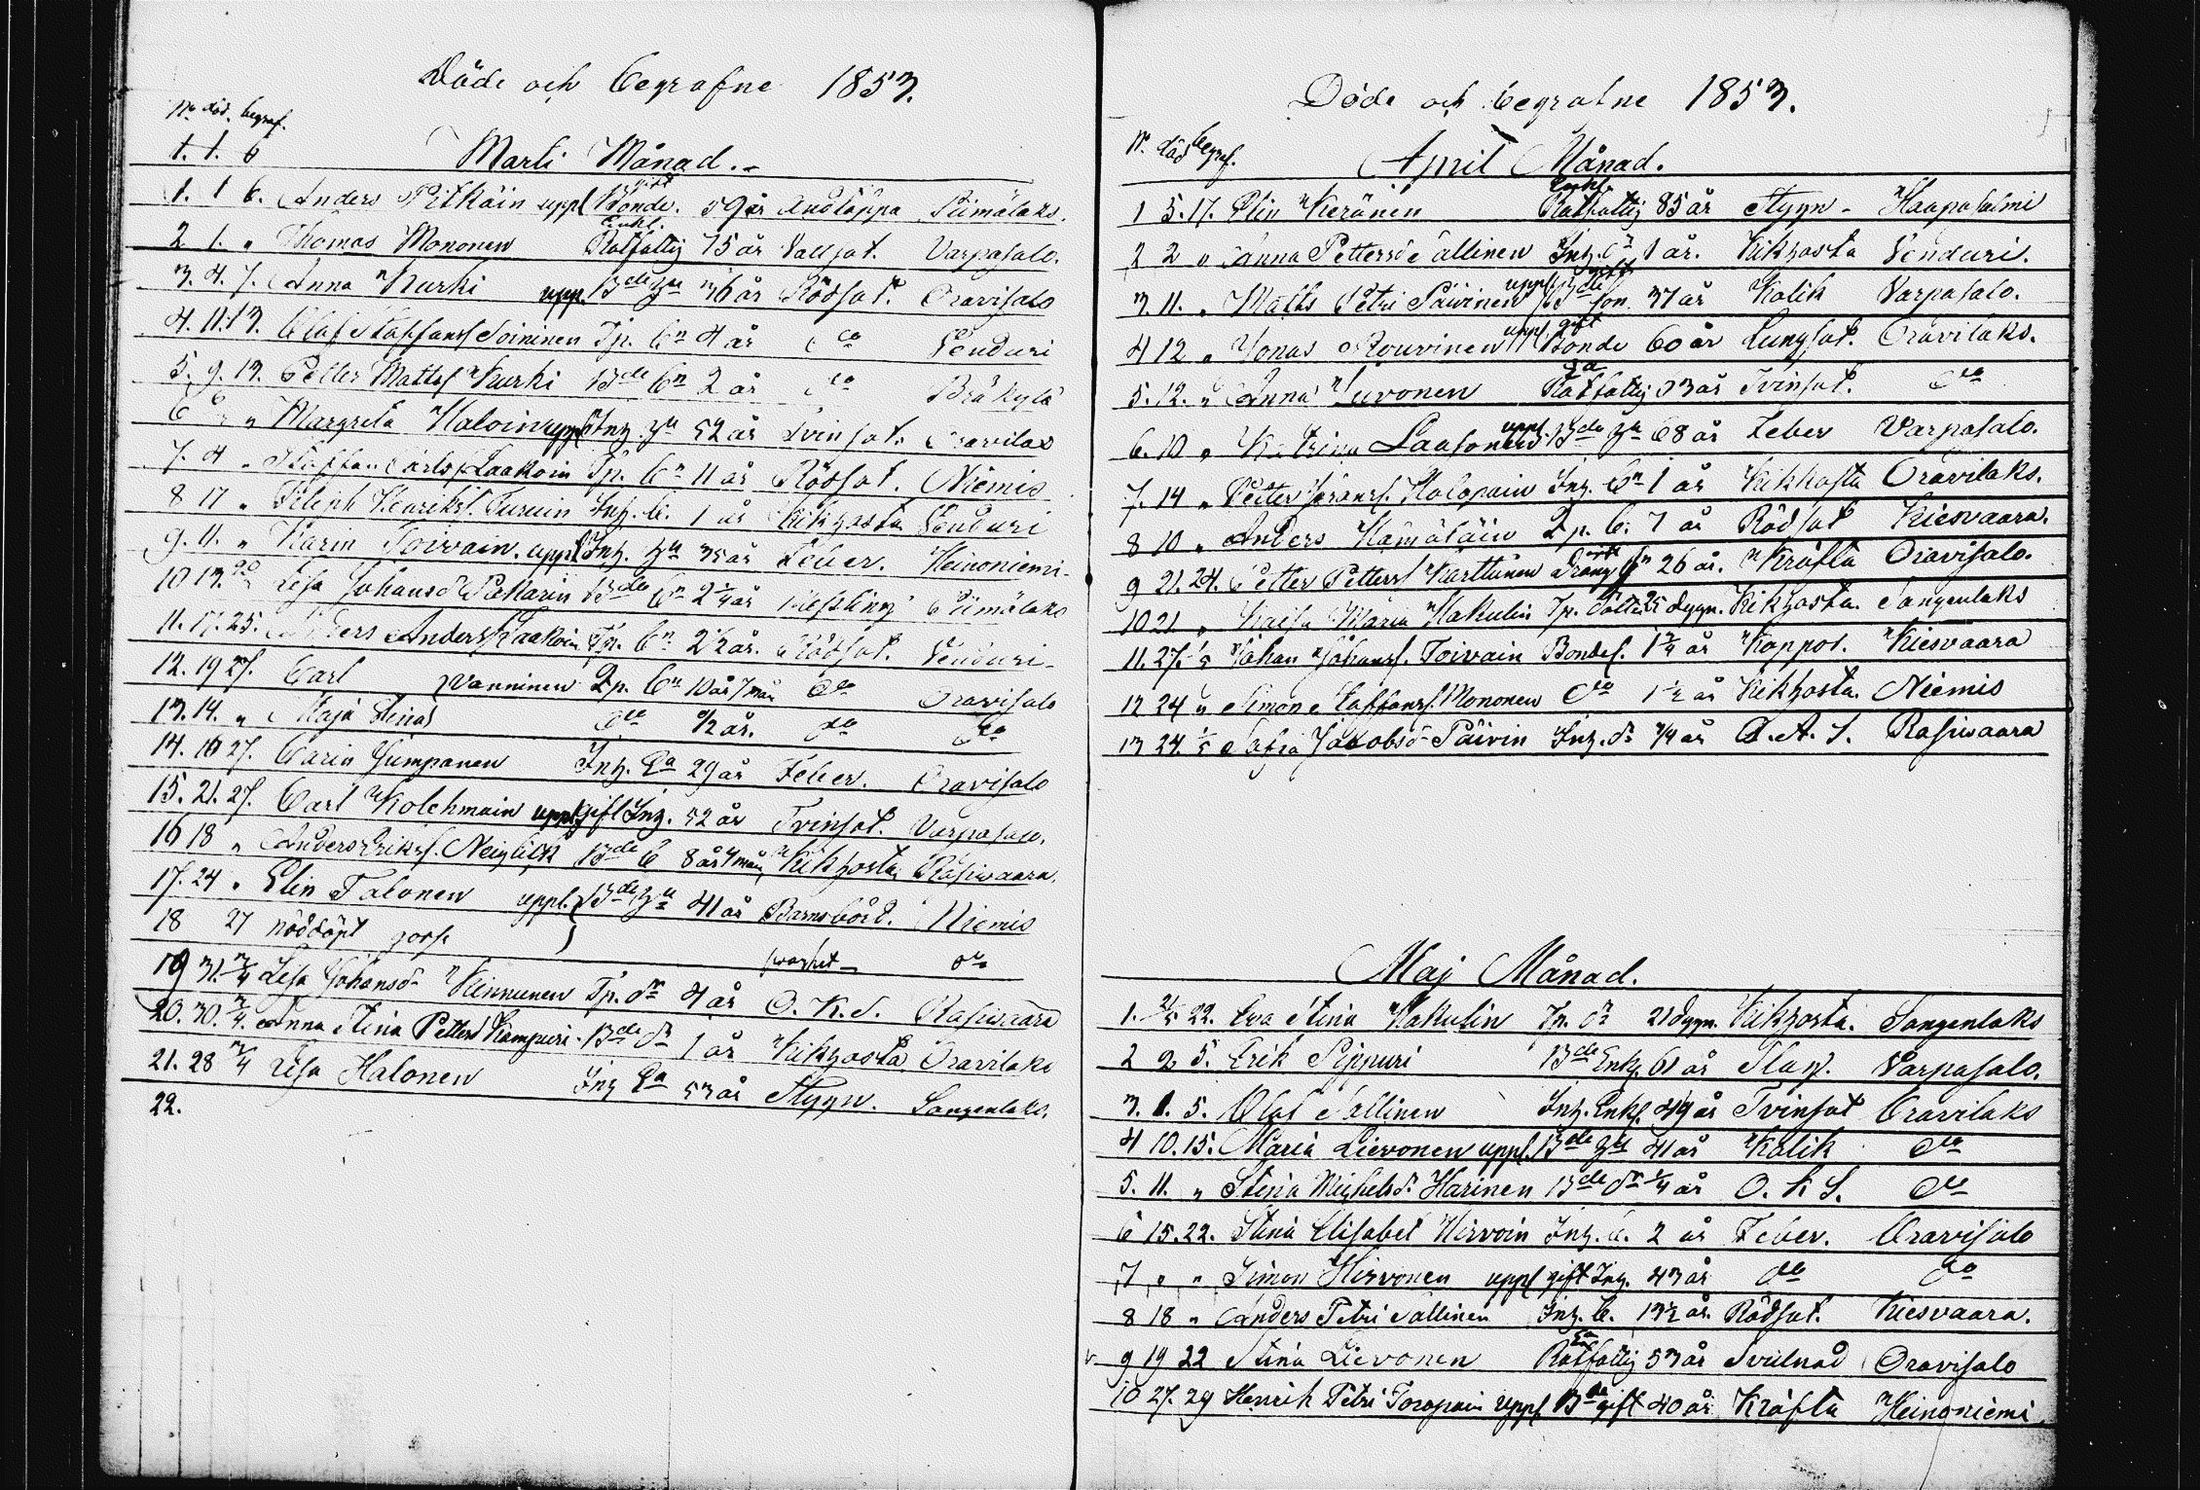 Döde och begrafne 1853.
No död. begraf.
1. 1. 6 Marti Månad.
1. 1 6. Anders Pitkäin uppl gift Bonde. 59 år Andtäppa Piimälaks.
2 1. " Thomas Mononen Enkl. Rotfattig 75 år Vattsot. Varpasalo.
3. 4. 7. Anna Kurki uppl. Bde Ja 36 år Rödsot. Oravisalo
4. 11. 13. Olof Staffanss Soininen Tp. bn 4 år do Venduri
5. 9. 13. Petter Mattss Kurki Bde bn 2 år do Bräkylä
6 " Margreta Haloin uppl Inh. ja 52 år Tvinsot. Oravilax
7. 4 " Staffan Carlss Laakoin Tp. bn 11 år Rödsot. Niemis
8 17 " Henrikss. Turuin Inh. b. 1 år Kikhosta Venduri
9. 11. " Karin Toivain. uppl Inh. ja 35 år Feber. Heinoniemi
10 13. 20 Lisa Johansdr Pekarin Bde bn 2 1/4 år Messling Piimälaks
11. 17. 25. Anders Anderss Laakoin Tp. bn 2 1/2 år. Rödsot. Venduri
12. 19 27. Carl Vanninen Tp. bn 10 år 7 mån do Oravisalo
13. 14. " Maja Stina do 1/2 år. do do
14. 16 27. Carin Gumpanen Inh. Ea 29 år Feber. Oravisalo
15. 21. 27. Carl Kolehmain uppl gift Inh. 52 år Tvinsot. Varpasalo.
16 18 " Anders Erikss. Neiglick Bde b 8 år 4 mån Kikhosta Rasiwaara.
17. 24 " Elin Talonen uppl. Bde ja 41 år Barnsbörd. Niemis
18 27 nöddöpt gosse svaghet do
19 31. 3/4 Lisa Johansdr Kinnunen Tp. dr 4 år O. K. S. Rasiwaara
20. 30. 3/4. Anna Stina Pettersd Kampuri. Bde dr 1 år Kikhosta Oravilaks
21. 28 3/4 Lisa Halonen Inh Ea 53 år Stygn. Sangenlaks.
22.
Döde och begrafne 1853.
No död begraf. April Månad.
1 5. 17. Elin Keränen Enkl. Rotfattig 85 år Stygn. Haapasalmi
2 2 " Anna Pettersd Sallinen Inh. dr 1 år. Kikhosta Venduri.
3. 11. " Matts Petri Päivinen uppl gift Bde son. 37 år Kolik Varpasalo.
4 12 " Jonas Rouvinen uppl gift Bonde 60 år Lungsot. Oravilaks.
5. 12. " Anna Luvonen Ea Rotfattig 53 år Tvinsot. do
6. 10 " Katrina Laasonen uppl. Bde ja 68 år Feber Varpasalo.
7. 14 " Petter Göranss. Holopain Inh. bn 1 år Kikhosta Oravilaks.
8 10 " Anders Hämäläin Tp. b. 7 år Rödsot Kiesvaara.
9 21. 24. Petter Petterss Karttunen gift Dräng 26 år. Kräfta Oravisalo.
10 21 " Kaisa Maria Kakulin Tp. dotter 25 dygn. Kikhosta. Sangenlaks
11. 27. 1/5 Johan Johanss. Toivain Bondes. 1 3/4 år Koppor. Kiesvaara
12 24 " Simon Staffanss. Mononen do 1 1/2 år Kikhosta. Niemis
13 24. 1/5 Sofia Jakobsdr Päivin Inh. dr 3/4 år O. A. S. Rasiwaara
Maj Månad.
1. 2/5 22. Eva Stina Kakulin Tp. dr 21 dygn. Kikhosta. Sangenlaks
2 2 5. Erik Sippuri Bde Enkl. 61 år Slag. Varpasalo.
3. 1. 5. Olof Sallinen Inh. Enkl. 49 år Tvinsot Oravilaks
4 10. 15. Maria Lievonen uppl. Bde ja 41 år Kolik do
5. 11. " Stina Michelsdr Harinen Bde dr 1/4 år O. K S. do
6 15. 22. Stina Elisabet Hirvoin Inh. b. 2 år Feber. Oravisalo
7 " " Simon Hirvonen uppl gift Inh. 43 år do do
8 18 " Anders Petri Sallinen Inh. b. 13 1/2 år. Rödsot. Kiesvaara.
9 19 22 Stina Lievonen Ea Rotfattig 53 år Svulnad Oravisalo
10 27. 29 Henrik Petri Toropain uppl Bde gift 40 år Kräfta Heinoniemi.